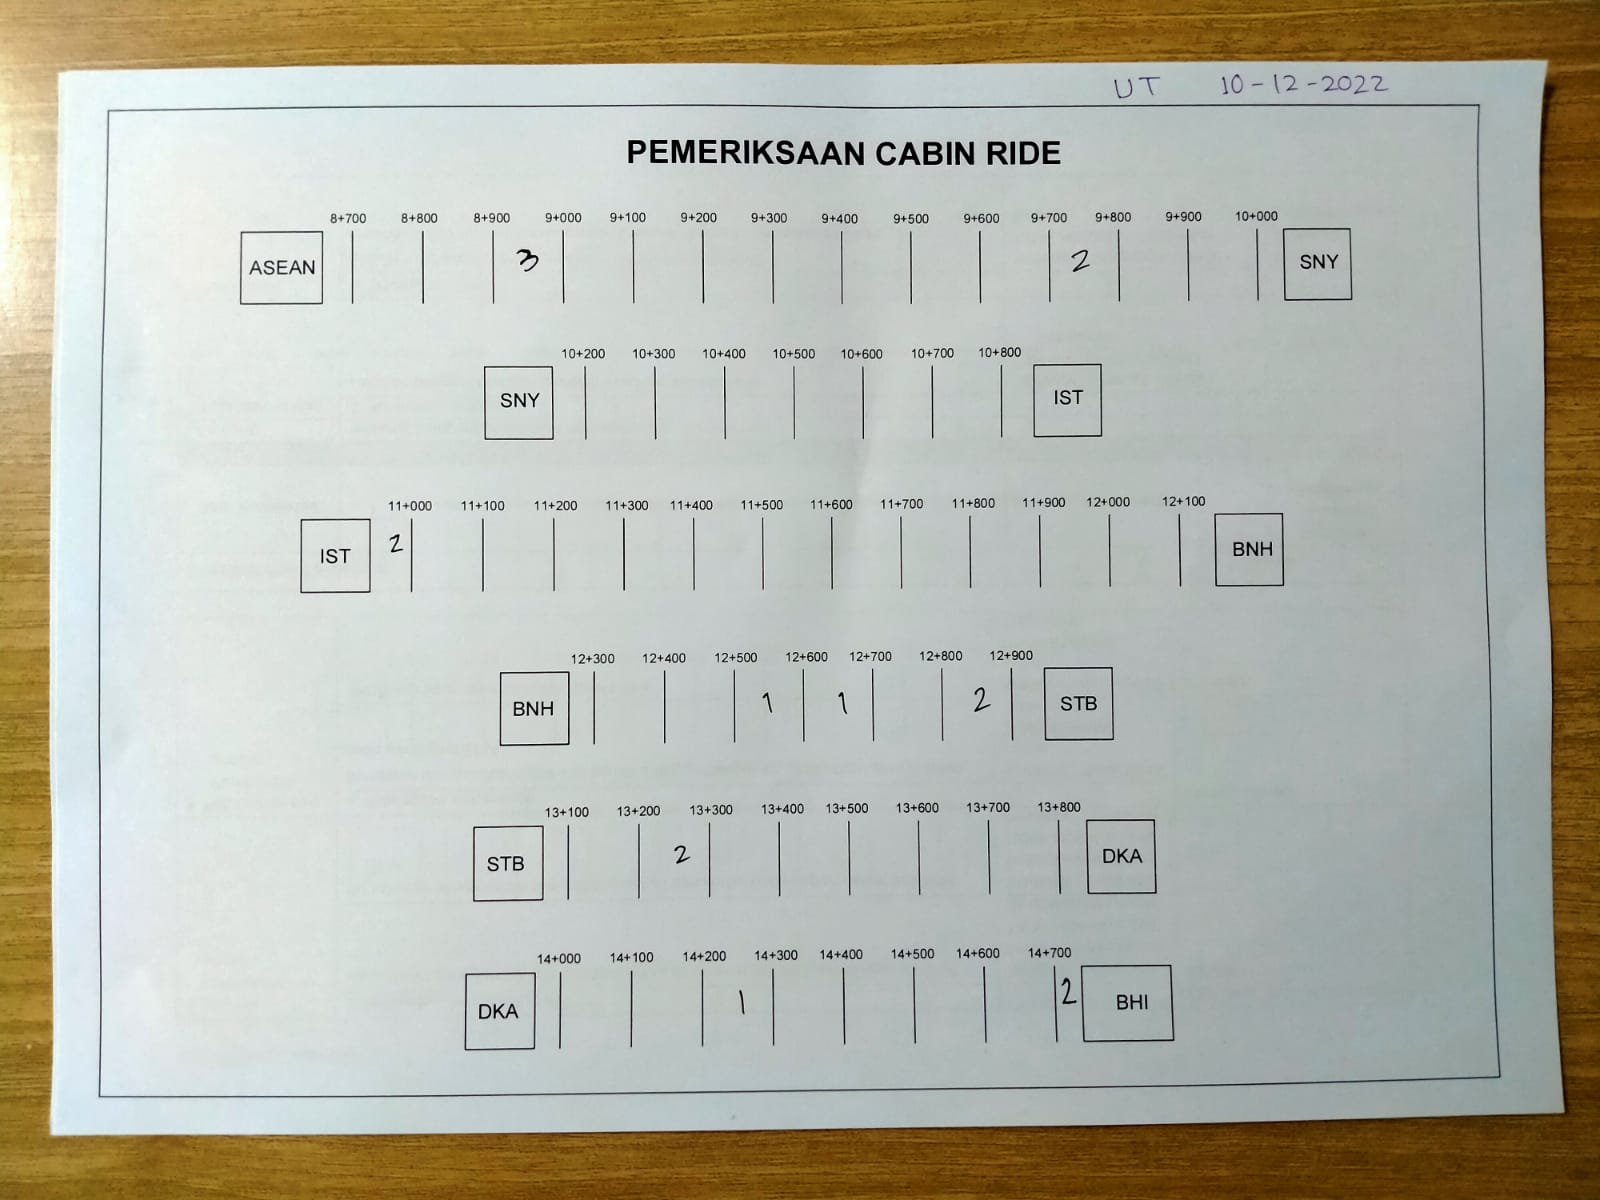 UT 10-12-2022
PEMERIKSAAN CABIN RIDE
8+700 8+800 8+900 9+000 9+100 9+200 9+300 9+400 9+500 9+600 9+700 9+800 9+900 10+000
ASEAN 3 2 SNY
10+200 10+300 10+400 10+500 10+600 10+700 10+800
SNY IST
11+000 11+100 11+200 11+300 11+400 11+500 11+600 11+700 11+800 11+900 12+000 12+100
IST 2 BNH
12+300 12+400 12+500 12+600 12+700 12+800 12+900
BNH 1 1 2 STB
13+100 13+200 13+300 13+400 13+500 13+600 13+700 13+800
STB 2 DKA
14+000 14+100 14+200 14+300 14+400 14+500 14+600 14+700
DKA 1 2 BHI